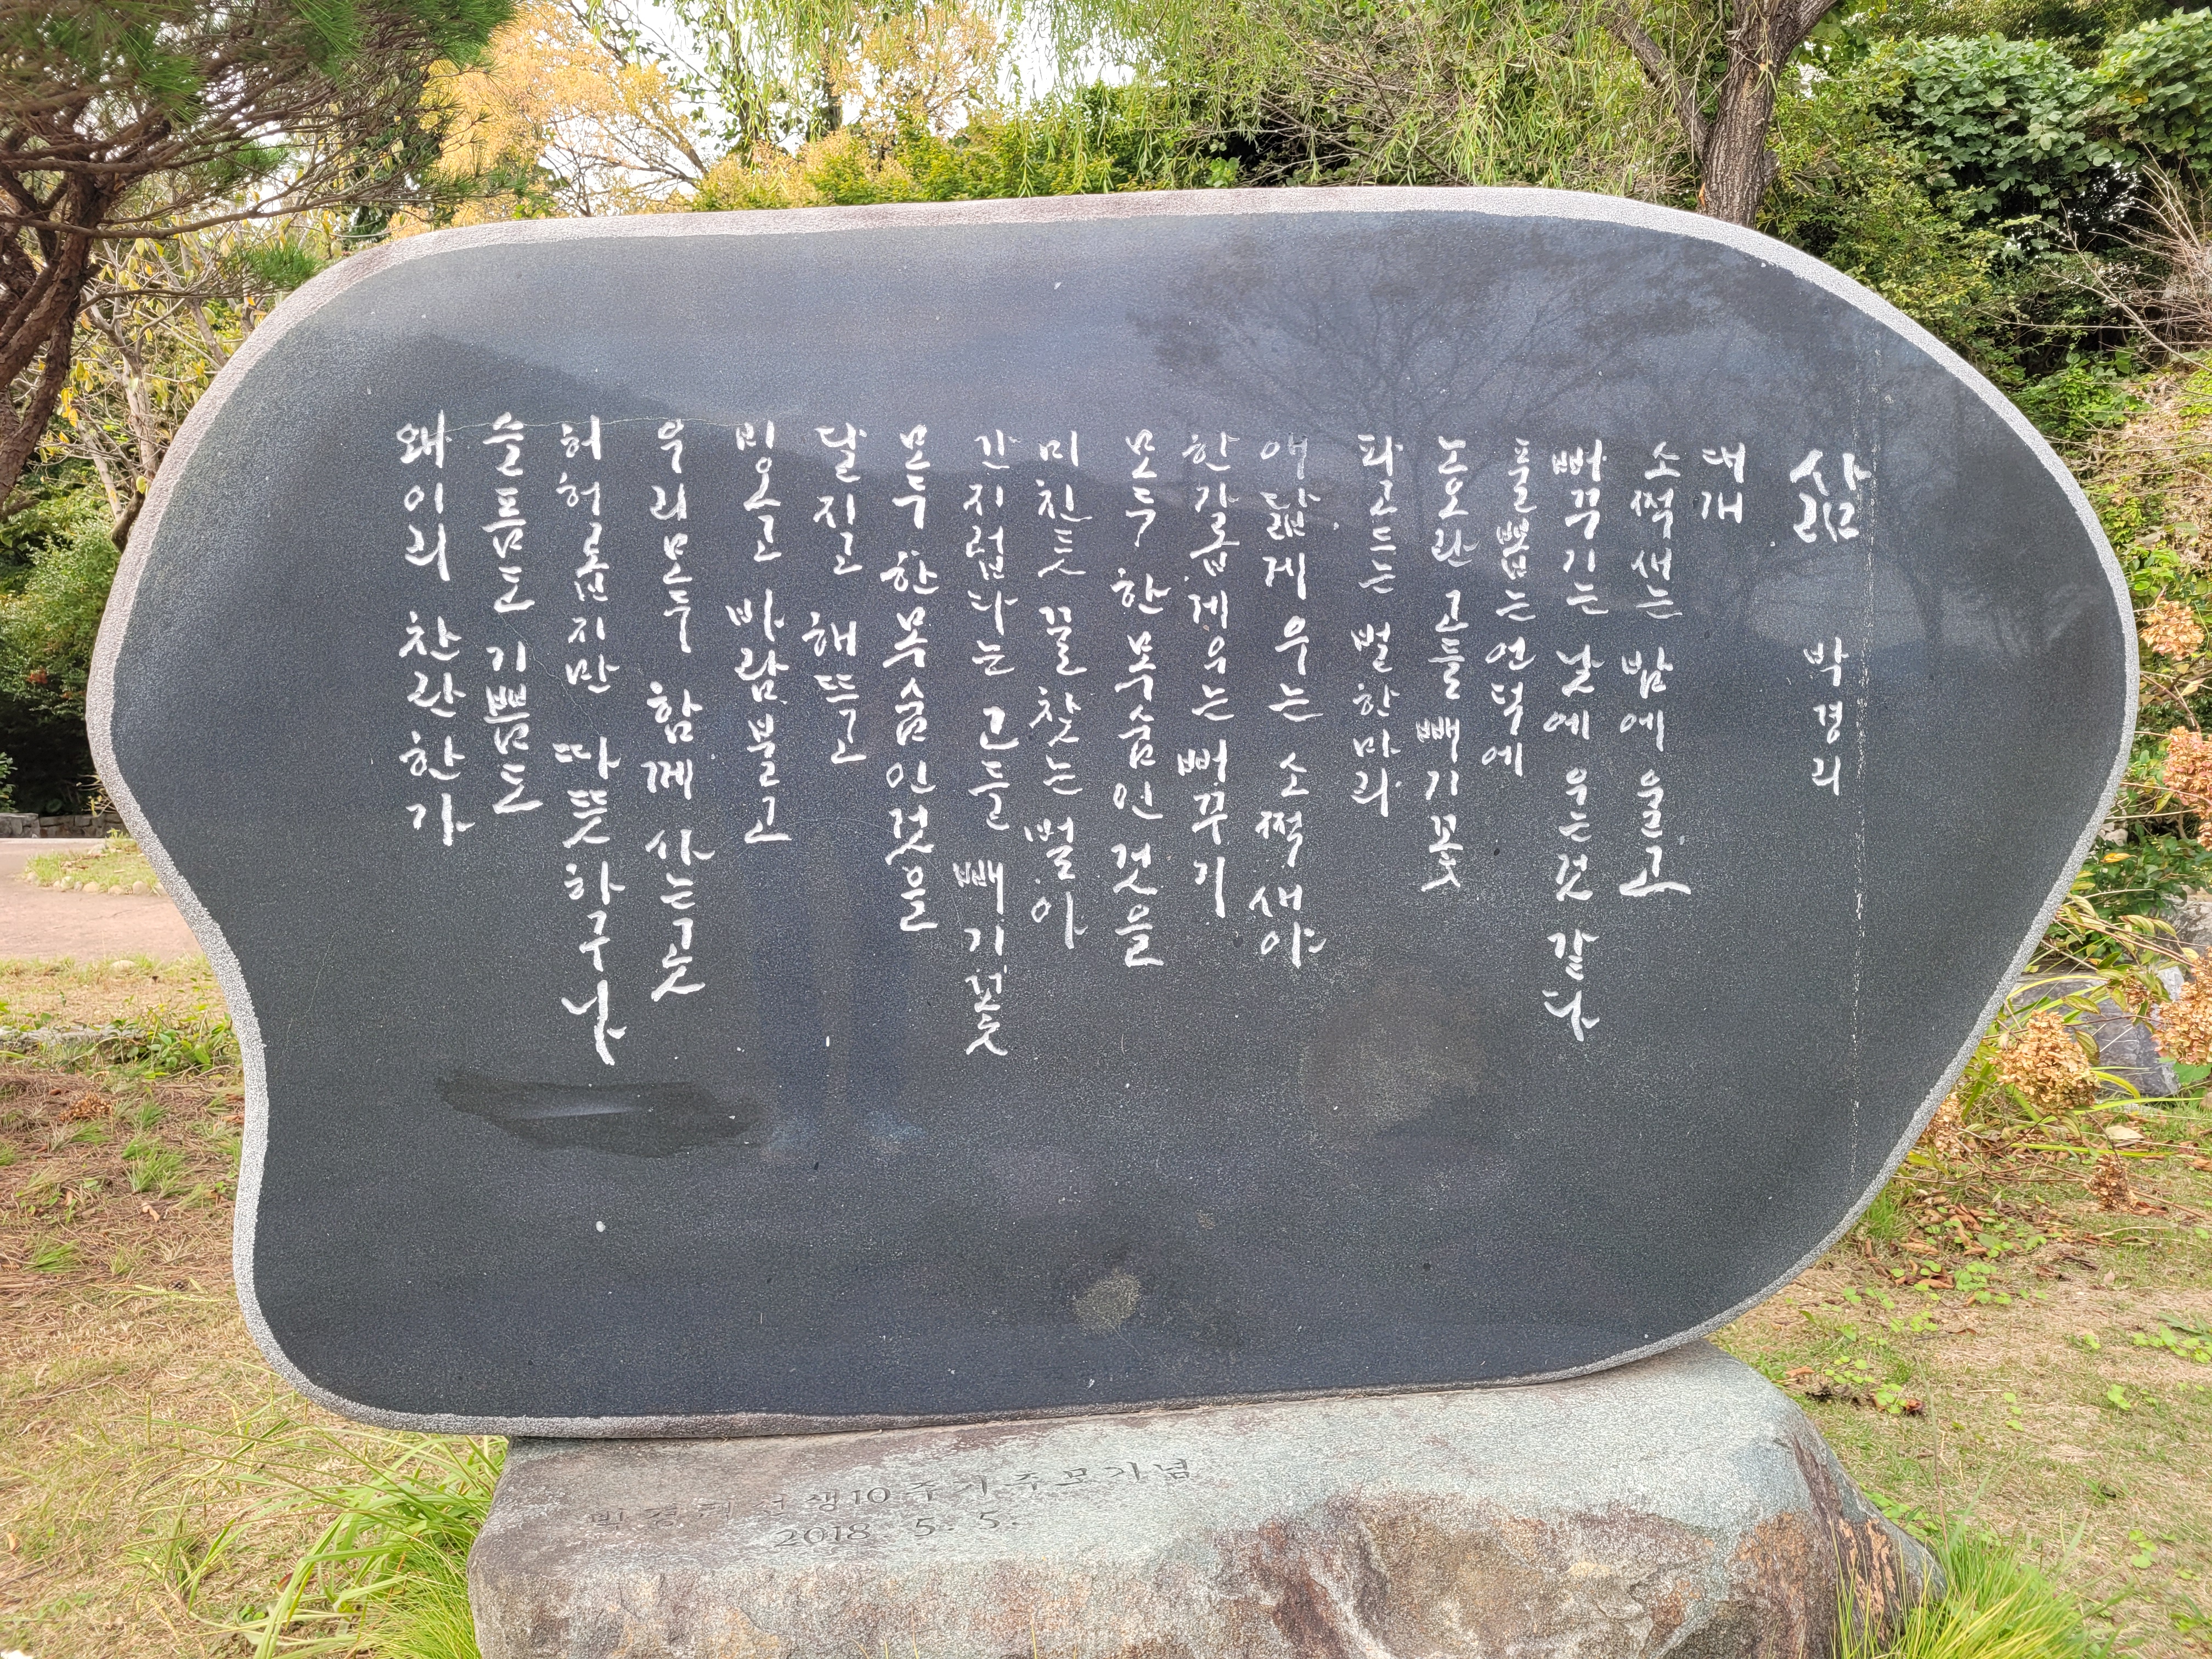 삶 박경리
대개
소쩍새는 밤에 울고
뻐꾸기는 낮에 우는 것 같다
풀 뽑는 언덕에
노오란 고들빼기꽃
파고드는 벌 한 마리
애닯게 우는 소쩍새야
한가롭게 우는 뻐꾸기
모두 한 목숨인 것을
미친듯 꿀 찾는 벌아
간지럽다는 고들빼기꽃
모두 한 목숨인 것을
달 지고 해 뜨고
비 오고 바람 불고
우리 모두 함께 사는 곳
허허롭지만 따뜻하구나
슬픔도 기쁨도
왜 이리 찬란한가
박경리선생10주기추모기념
2018. 5. 5.